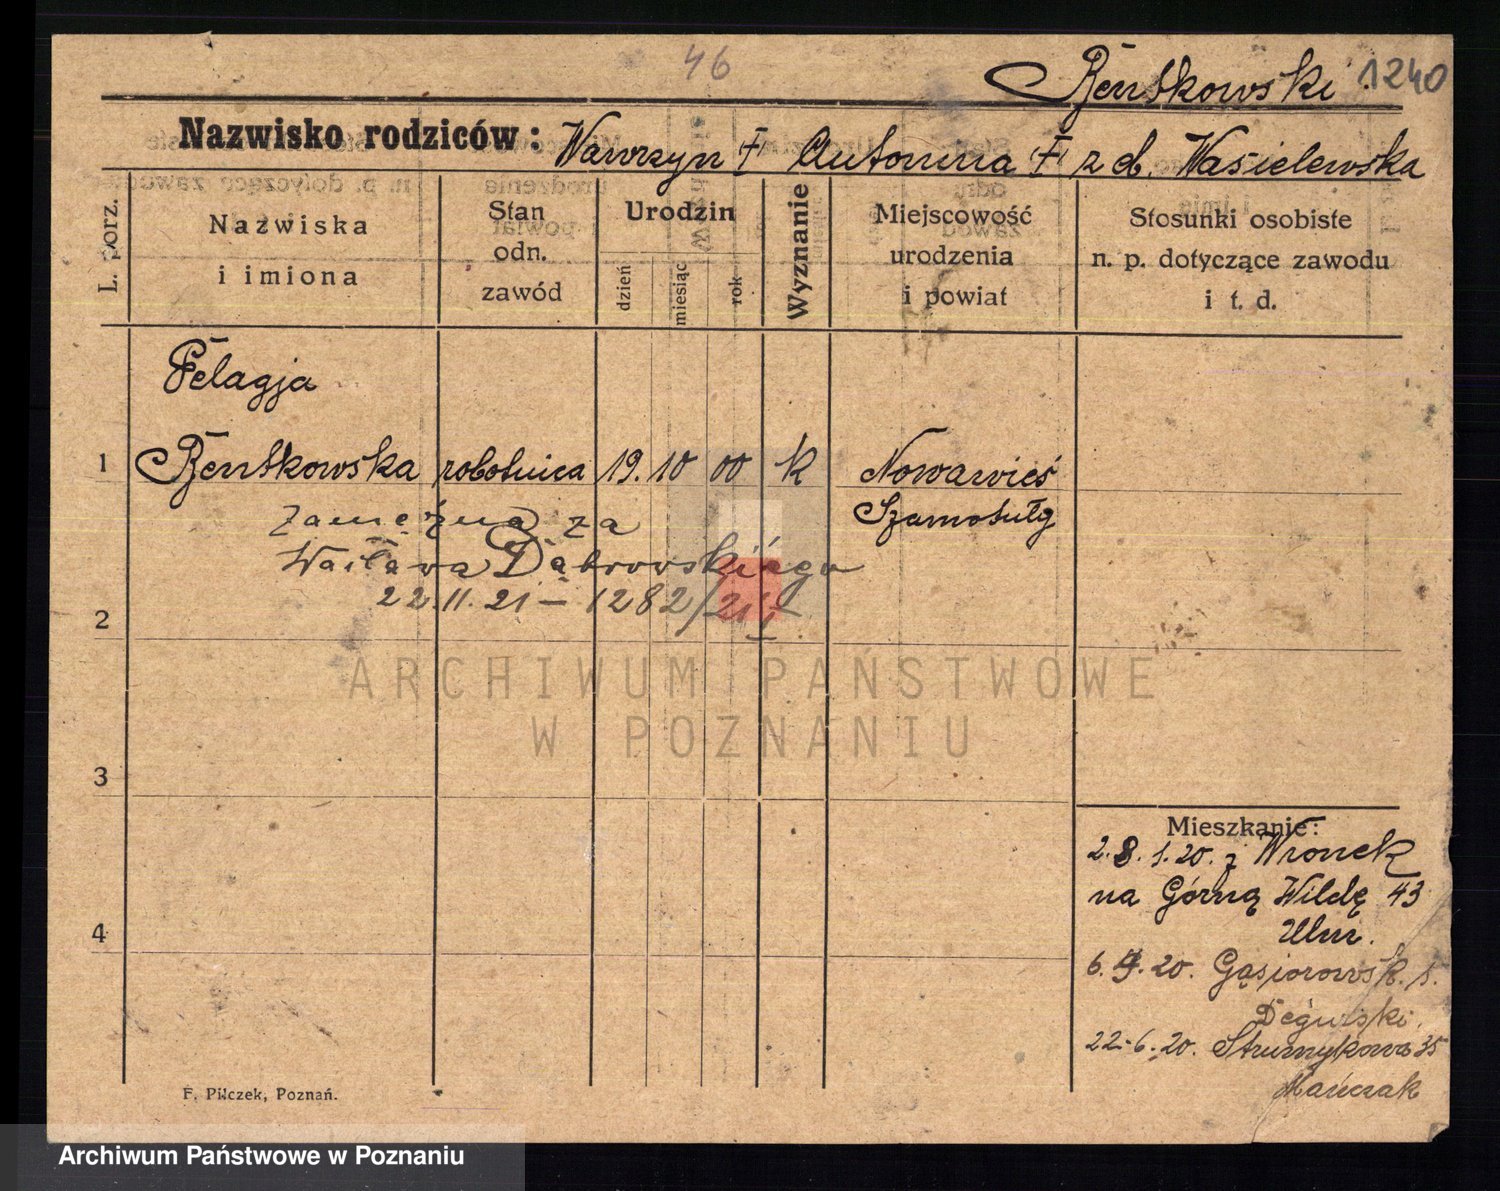 46
Rentkowski 1240
Nazwisko rodziców: Wawrzyn † Antonina † z d. Wasielewska
L. porz.
Nazwiska
i imiona
Stan
odn.
zawód
Urodzin
dzień
miesiąc
rok
Wyznanie
Miejscowość
urodzenia
i powiat
Stosunki osobiste
n. p. dotyczące zawodu
i t. d.
Pelagja
1 Rentkowska robotnica 19. 10 00 k Nowawieś
Szamotuły
zamężna za
Wacława Dąbrowskiego
22.11.21 — 1282/21
2
3
4
Mieszkanie:
28.1.20. z Wronek
na Górną Wildę 43
6.4.20. Gąsiorowsk. 1.
Degórski.
22.6.20. Strumykowa 35
Mańczak
F. Pilczek, Poznań.
ARCHIWUM PAŃSTWOWE
W POZNANIU
Archiwum Państwowe w Poznaniu